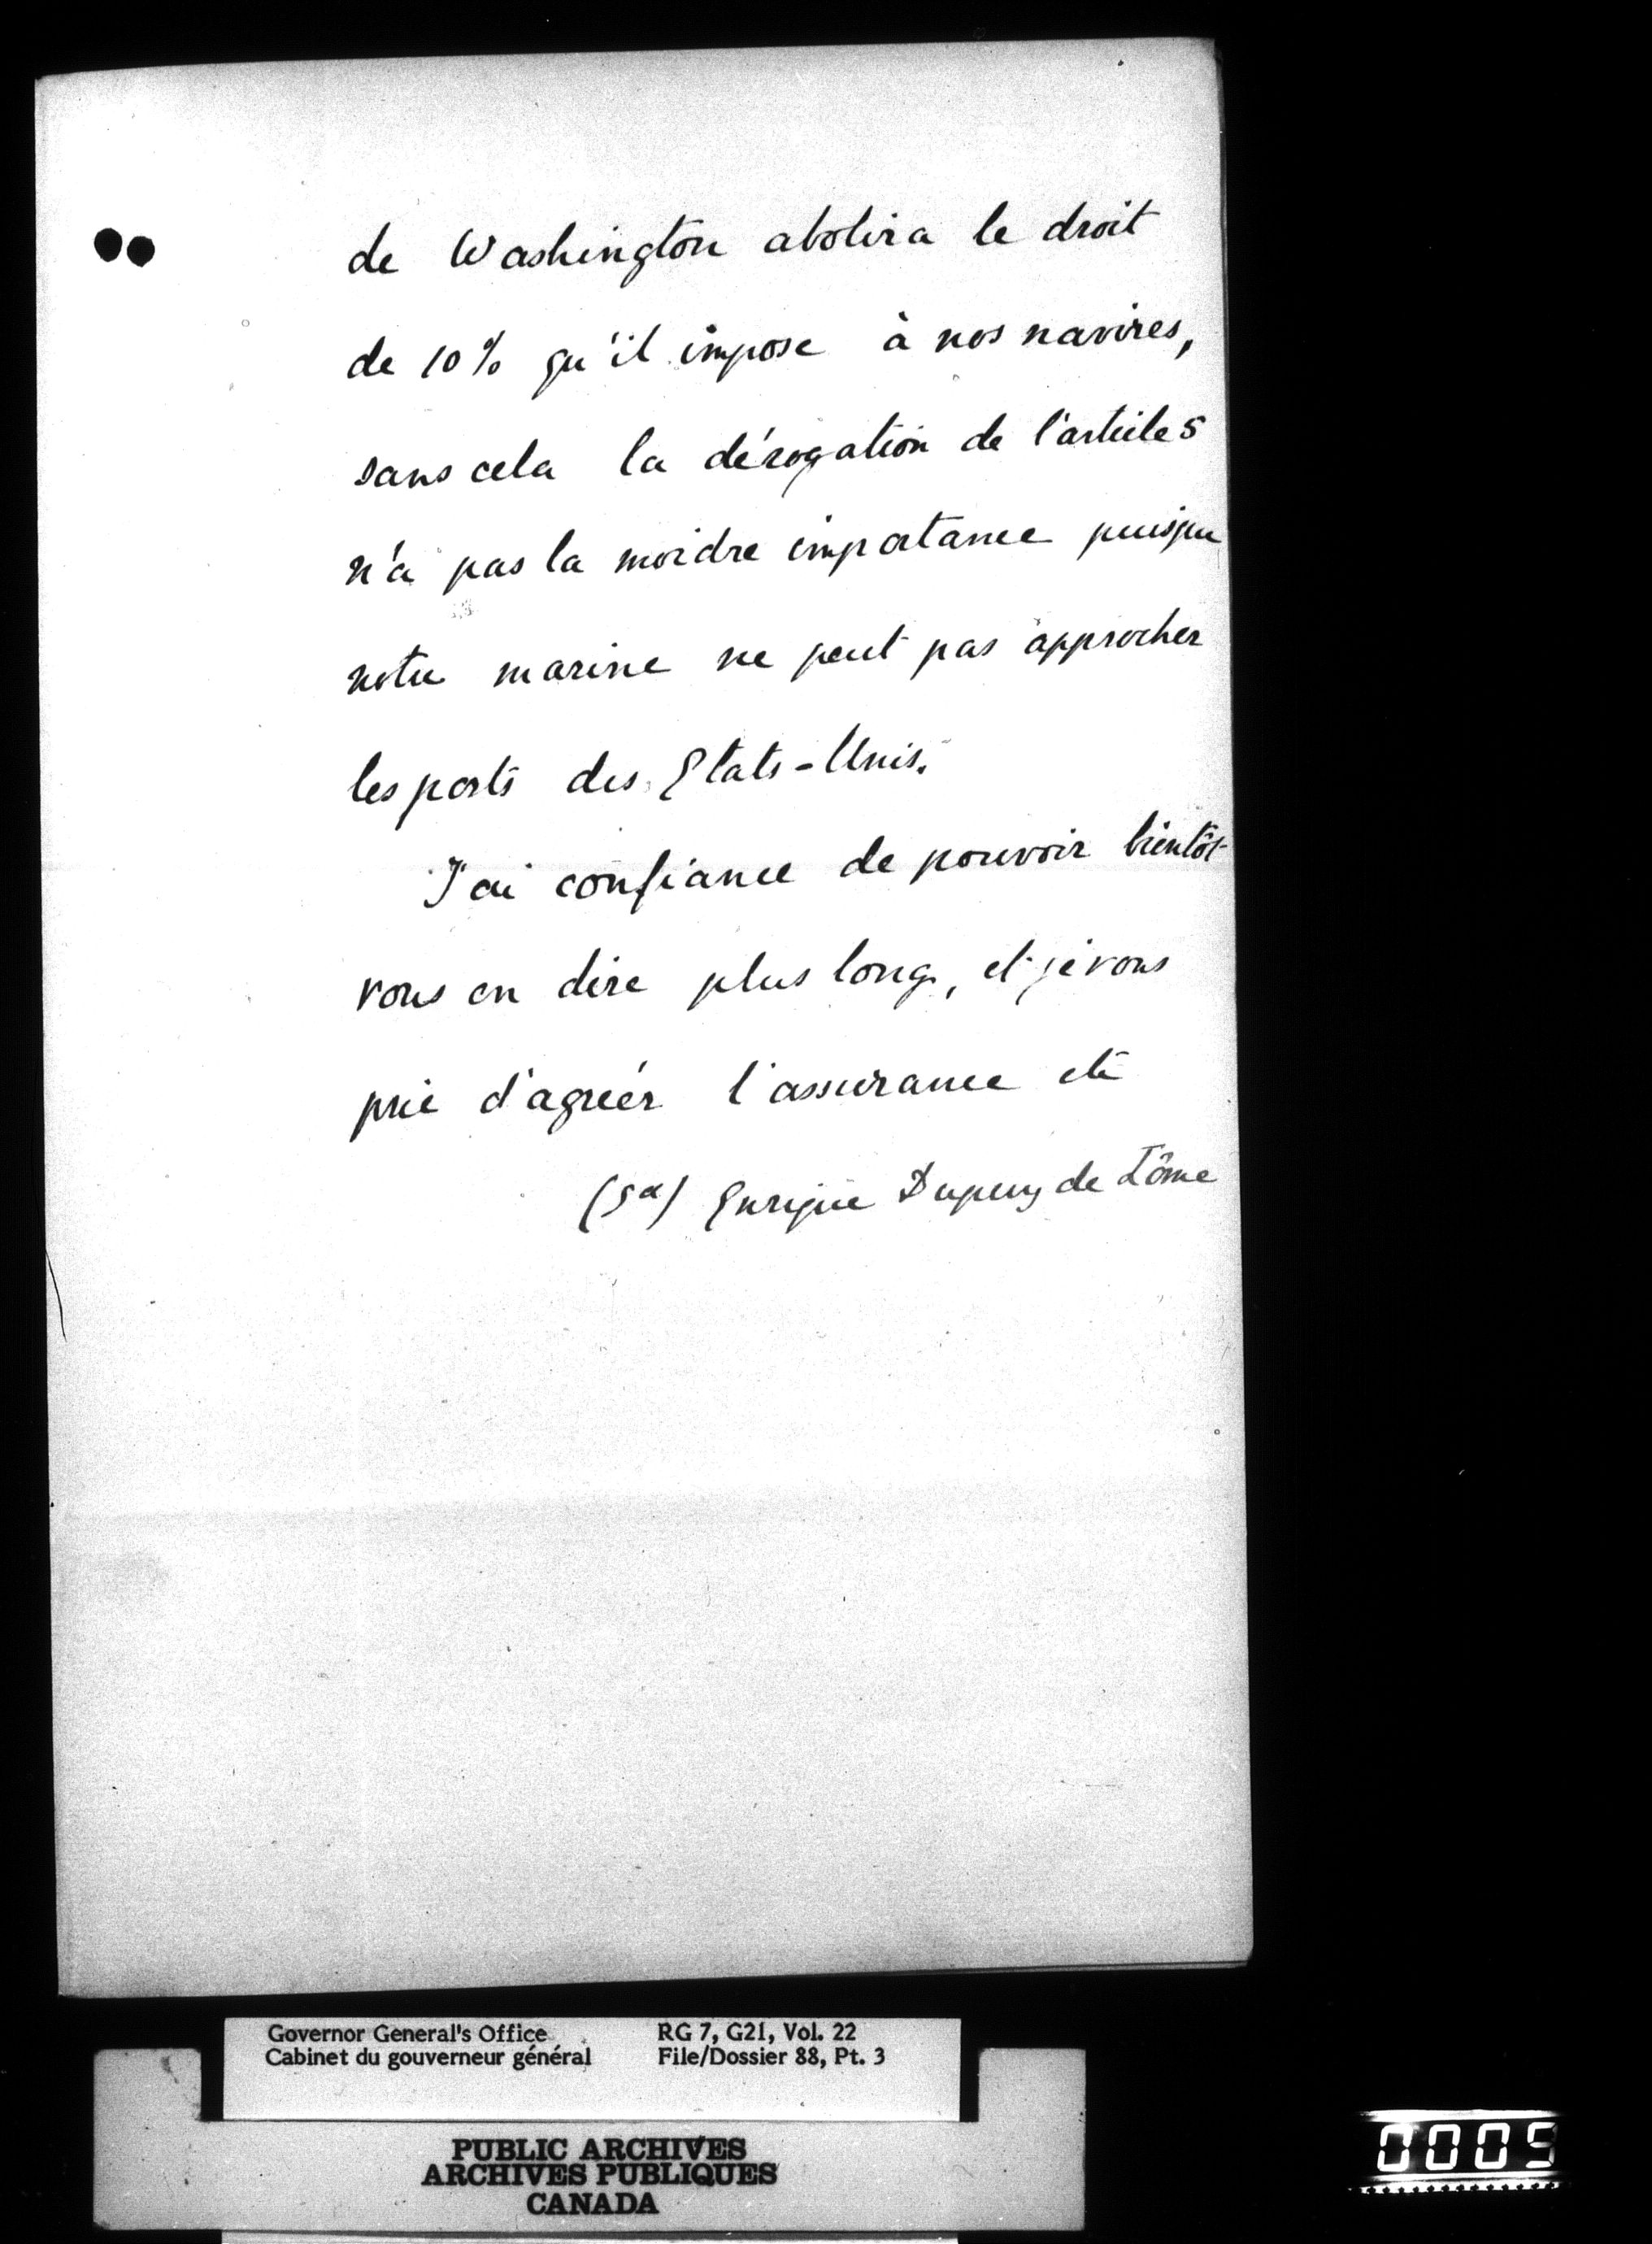 de Washington abolira le droit
de 10% qu'il impose à nos navires,
sans cela la dérogation de l'article 5
n'a pas la moidre importance puisque
notre marine ne peut pas approcher
les ports des Etats-Unis.
J'ai confiance de pouvoir bientôt
vous en dire plus long, et je vous
prie d'agréer l'assurance etc
(Sd) Enrique Dupuy de Lôme
Governor General's Office RG 7, G21, Vol. 22
Cabinet du gouverneur général File/Dossier 88, Pt. 3
PUBLIC ARCHIVES
ARCHIVES PUBLIQUES
CANADA
0005